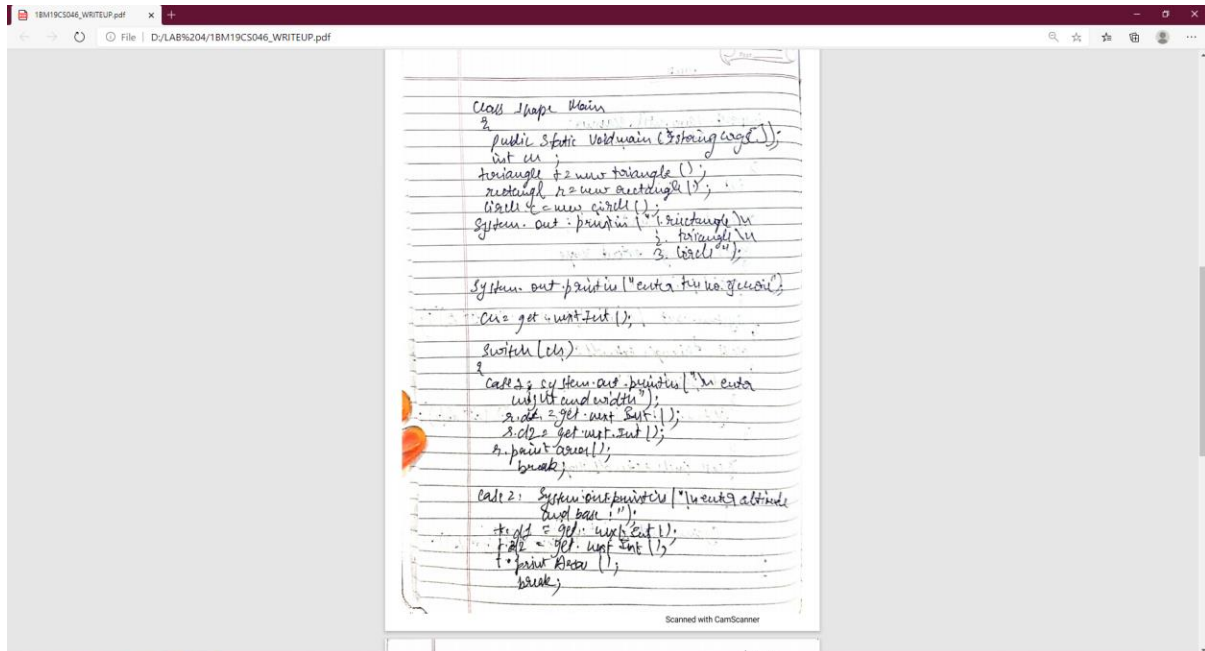 1BM19CS046_WRITEUP.pdf
File | D:/LAB%204/1BM19CS046_WRITEUP.pdf
Class Shape Main
{
public Static Void main (String args[]);
int ch ;
triangle t = new triangle ();
rectangl r = new rectangle ();
Circle c = new circle ();
System. out . println ("1. rectangle \n
2. triangle \n
3. Circle");
System. out. println ("enter the no. choice");
ch = get . next Int ();
Switch (ch)
{
Case 1: system.out.println ("\n enter
height and width");
r.d1 = get. next Int ();
r.d2 = get. next. Int ();
r. print area();
break;
Case 2: System.out.println ("\n enter altitude
and base :");
t. d1 = get. next. Int ();
t. d2 = get. next Int ();
t. print Area ();
break;
Scanned with CamScanner